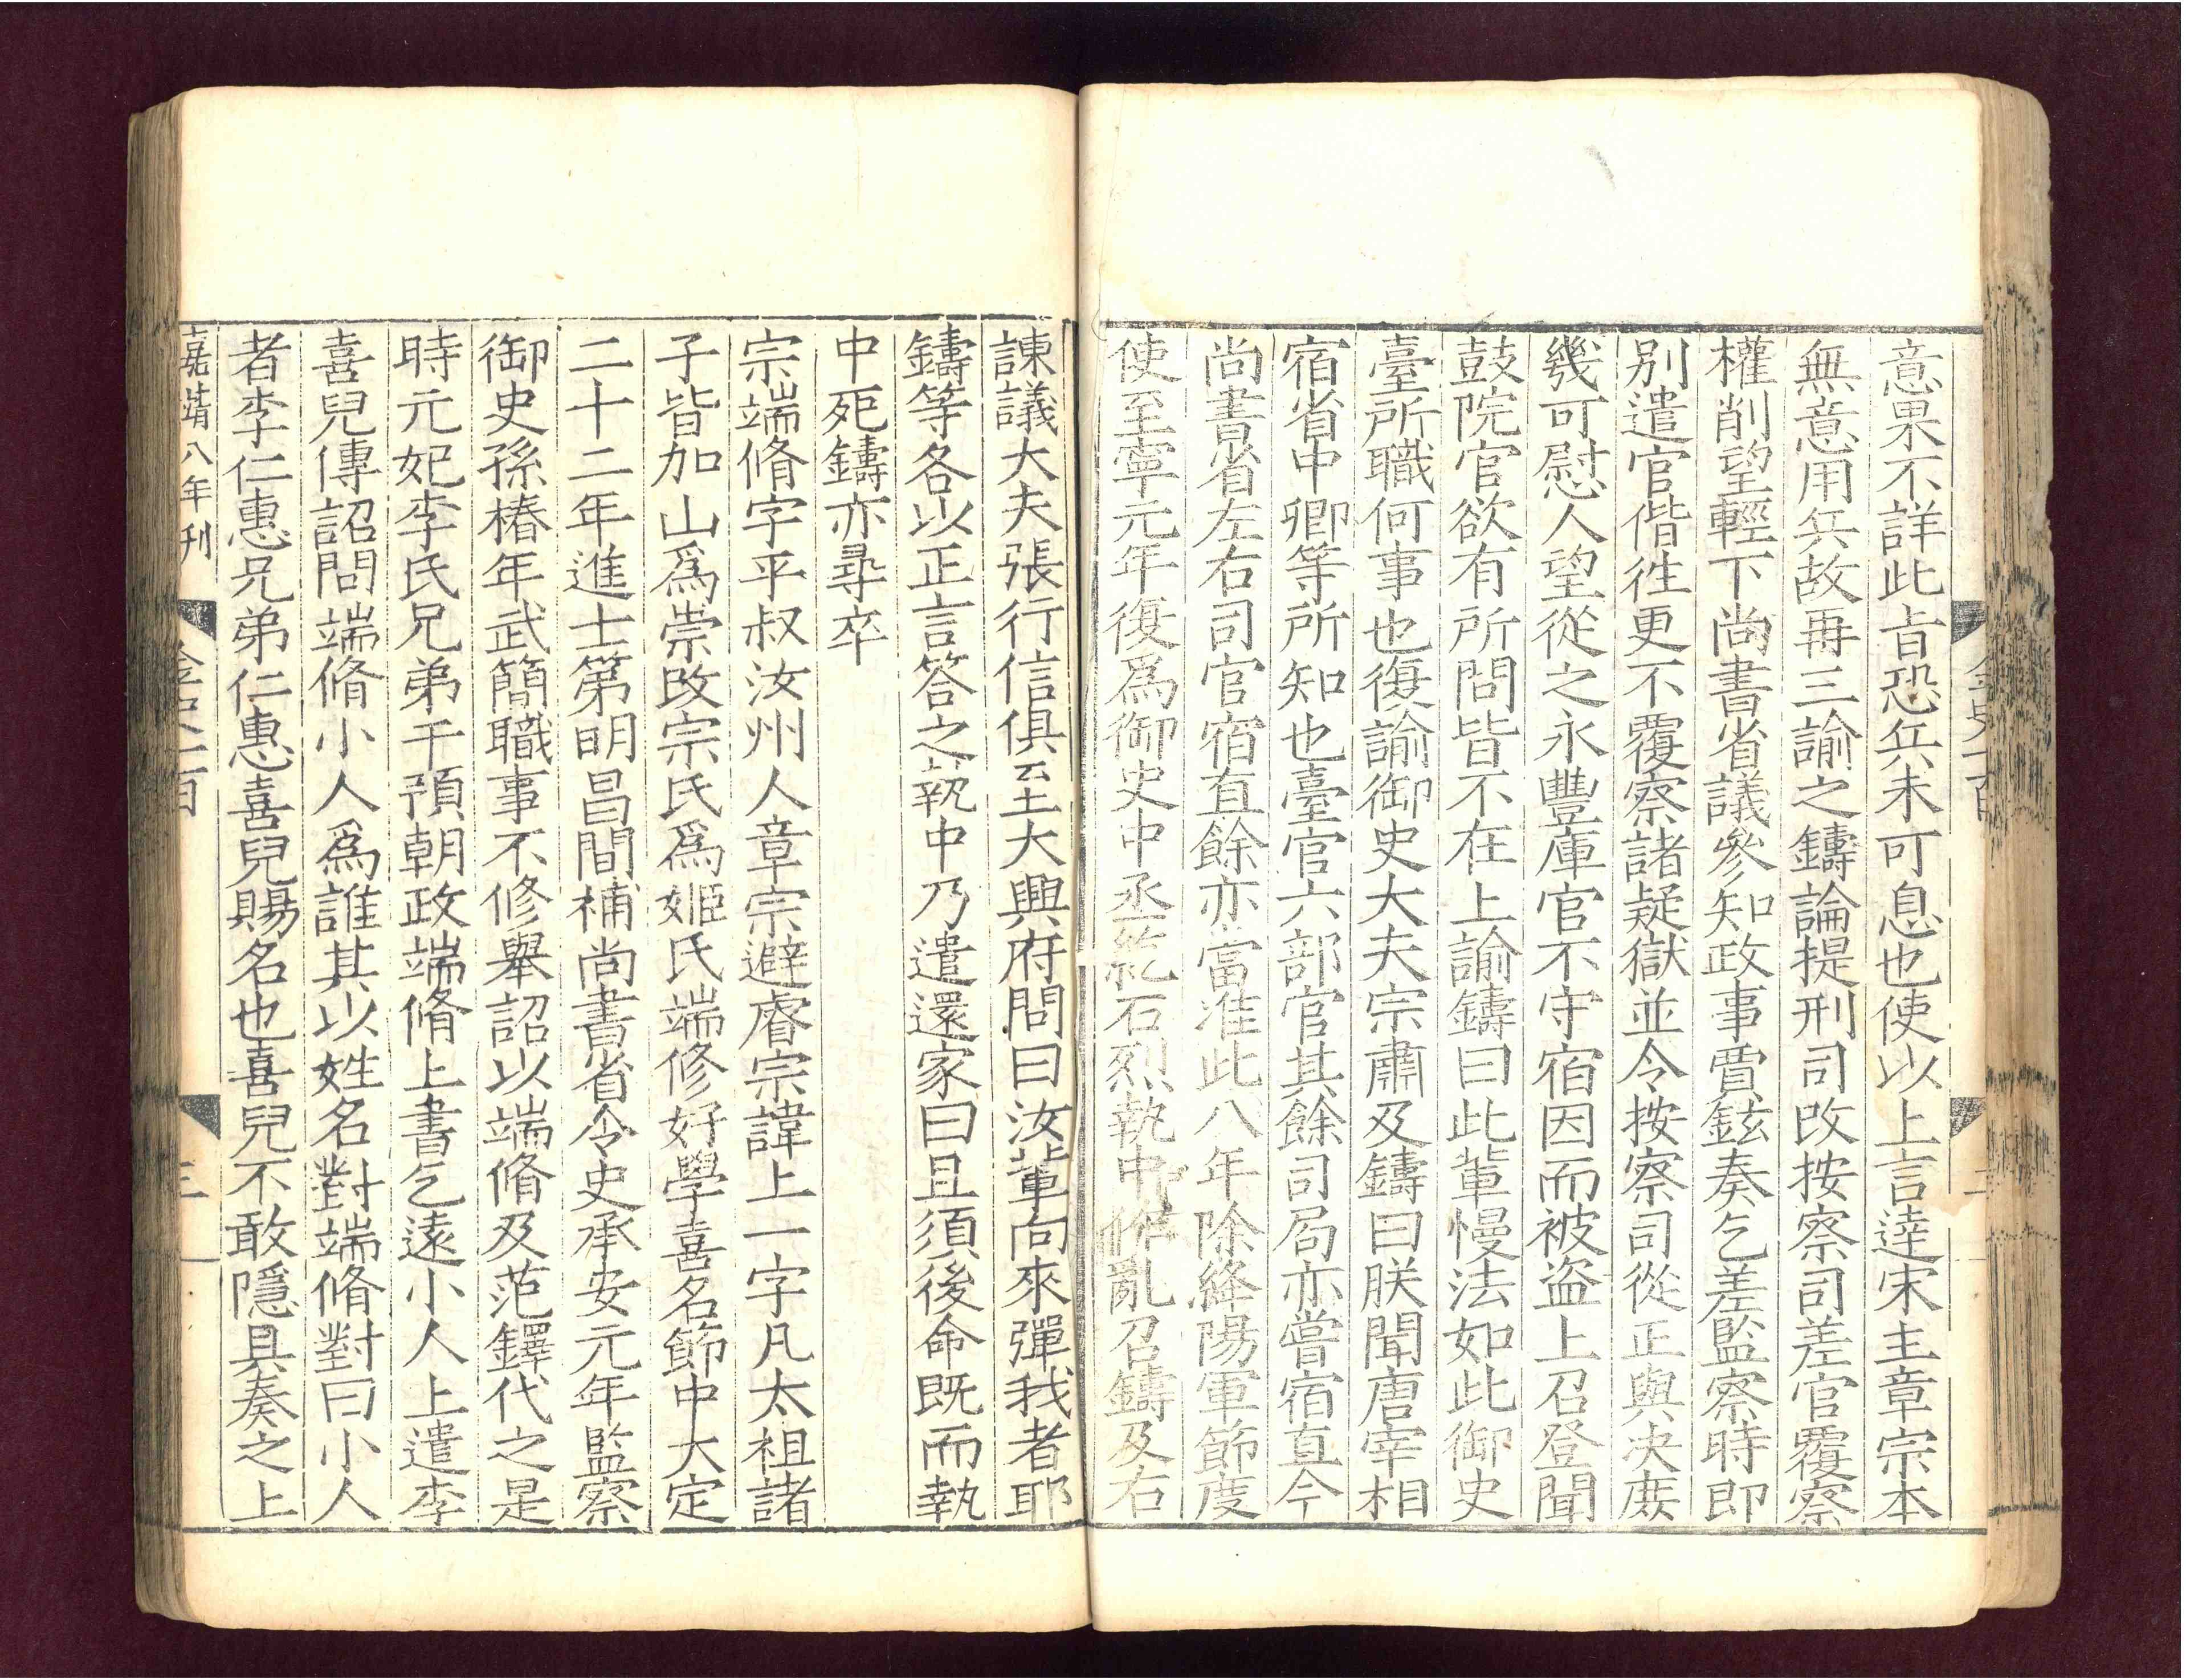 意果不詳此㫖恐兵未可息也使以上言逹宋主章宗本
無意用兵故再三諭之鑄論提刑司改按察司差官覆察
權削望輕下尚書省議參知政事賈鉉奏乞差監察時即
别遣官偕徃更不覆察諸疑獄並令按察司從正與决庶
幾可慰人望從之永豐庫官不守宿因而被盗上召登聞
鼓院官欲有所問皆不在上諭鑄曰此輩慢法如此御史
臺所職何事也復諭御史大夫宗肅及鑄曰朕聞唐宰相
宿省中卿等所知也臺官六部官其餘司局亦嘗宿直今
尚書省左右司官宿直餘亦當准此八年除絳陽軍節度
使至寧元年復爲御史中丞紇石烈執中作亂召鑄及右
諫議大夫張行信俱至大興府問曰汝輩向來彈我者耶
鑄等各以正言答之執中乃遣還家曰且須後命既而執
中死鑄亦尋卒
宗端脩字平叔汝州人章宗避睿宗諱上一字凡太祖諸
子皆加山爲崇改宗氏爲姬氏端修好學喜名節中大定
二十二年進士第明昌間補尚書省令史承安元年監察
御史孫椿年武簡職事不修舉詔以端脩及范鐸代之是
時元妃李氏兄弟干預朝政端脩上書乞遠小人上遣李
喜兒傳詔問端脩小人爲誰其以姓名對端脩對曰小人
者李仁惠兄弟仁惠喜兒賜名也喜兒不敢隱具奏之上
嘉靖八年刊
金史一百
三